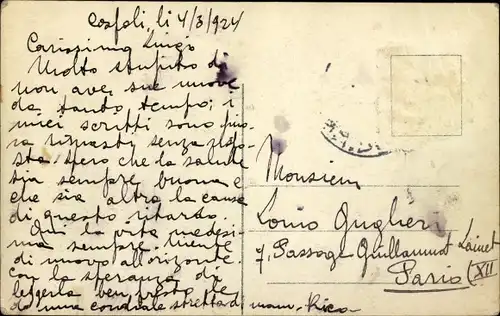 Cospoli, li 4/3/924
Carissimo Luigi
Molto stupito di
non aver sue nuove
da tanto tempo; i
miei scritti sono fino-
ra rimasti senza rispo-
sta. Spero che la salute
sia sempre buona e
che sia altra la causa
di questo ritardo.
Qui la vita medesi-
ma sempre. Niente
di nuovo all'orizonte.
Con la speranza di
leggerla ben presto le
do una cordiale stretta di mano. Rico
Monsieur
Louis Guglieri
7, Passage Guillaumot Lainet
Paris (XII